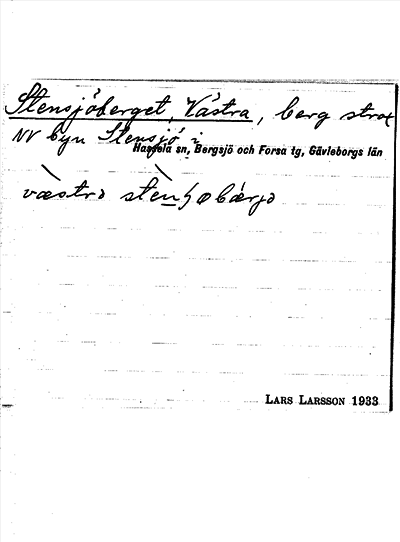 Stensjöberget, Västra, berg strax
NV byn Stensjö i
Hassela sn, Bergsjö och Forsa tg, Gävleborgs län
västrə
LARS LARSSON 1933